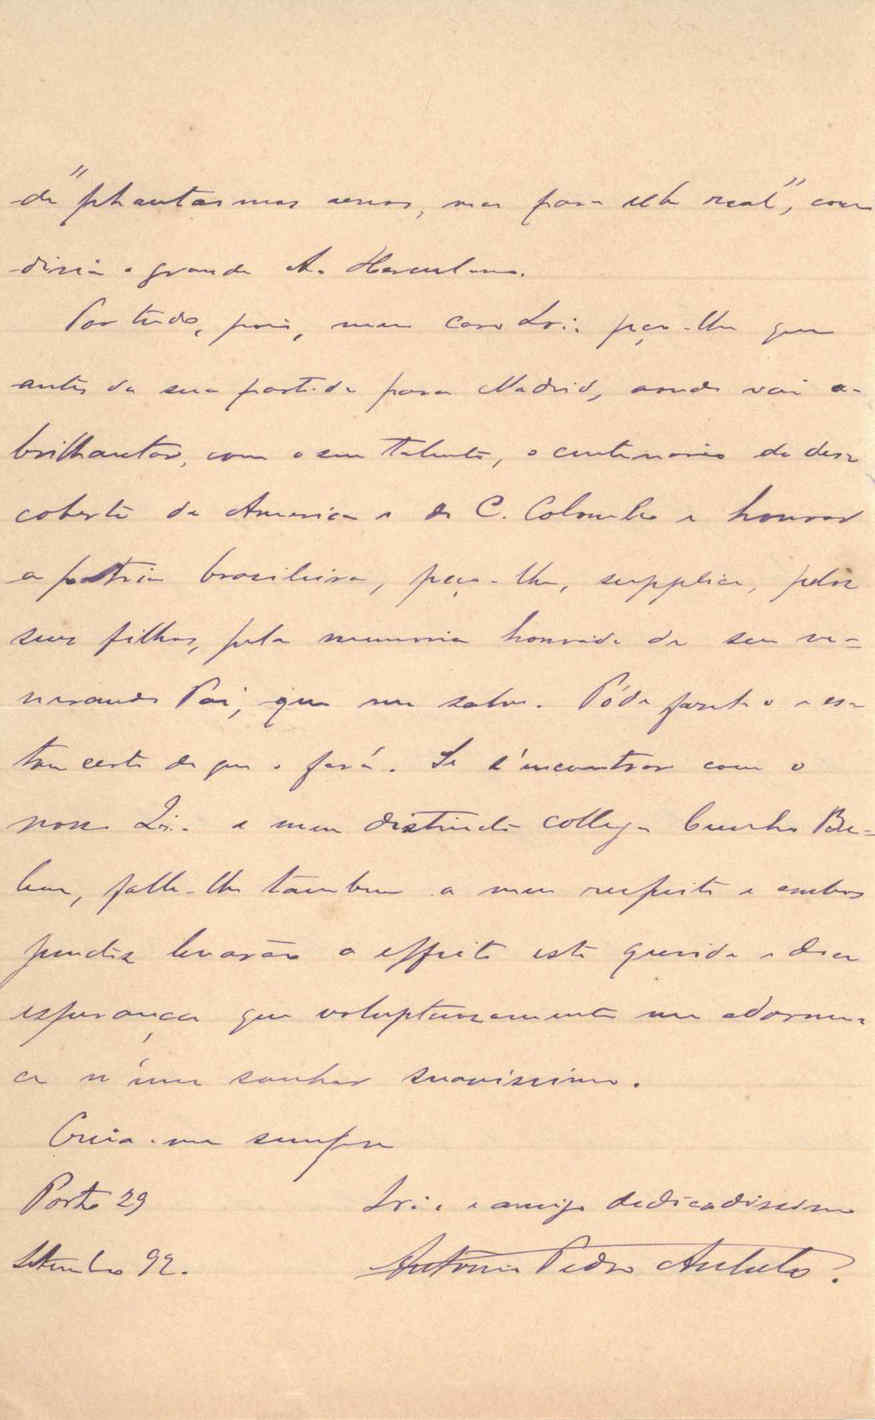 de "phantasmas vãos, mas para elle real", como
diria o grande A. Herculano.
Por tudo, pois, meu caro peço-lhe que
antes da sua partida para Madrid, aonde vai a-
brilhantar, com o seu talento, o centenario da des-
coberta da America e de C. Colombo e honrar
a patria brasileira, peço-lhe, supplico, pelos
seus filhos, pela memoria honrada de seu ve-
nerando Pai, que me salve. Póde fazel-o e es-
tou certo de que o fará. Se s'encontrar com o
nosso e meu distincto collega Cunha Be-
lem, falle-lhe tambem a meu respeito e ambos
junctos levarão a effeito esta querida e doce
esperança que voluptuosamente me adorme-
ce n'um sonhar suavissimo.
Creia-me sempre
Porto 29
e amigo dedicadissimo
Setembro 92.
Antonio Pedro